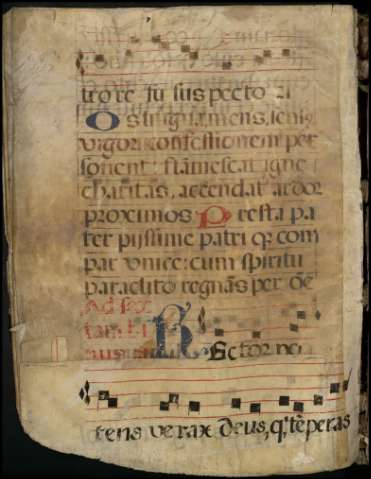 trore su sus pecto ri
Os lingua, mens, sensus
vigor, confessionem per
sonent: flāmescat igne
charitas, accendat ardor
proximos Presta pa
ter pijssime patri q; com
par vnice: cum spiritu
paraclito regnās per oē
Ad sex
tam hi
Rector po
tens verax deus, q; tēperas